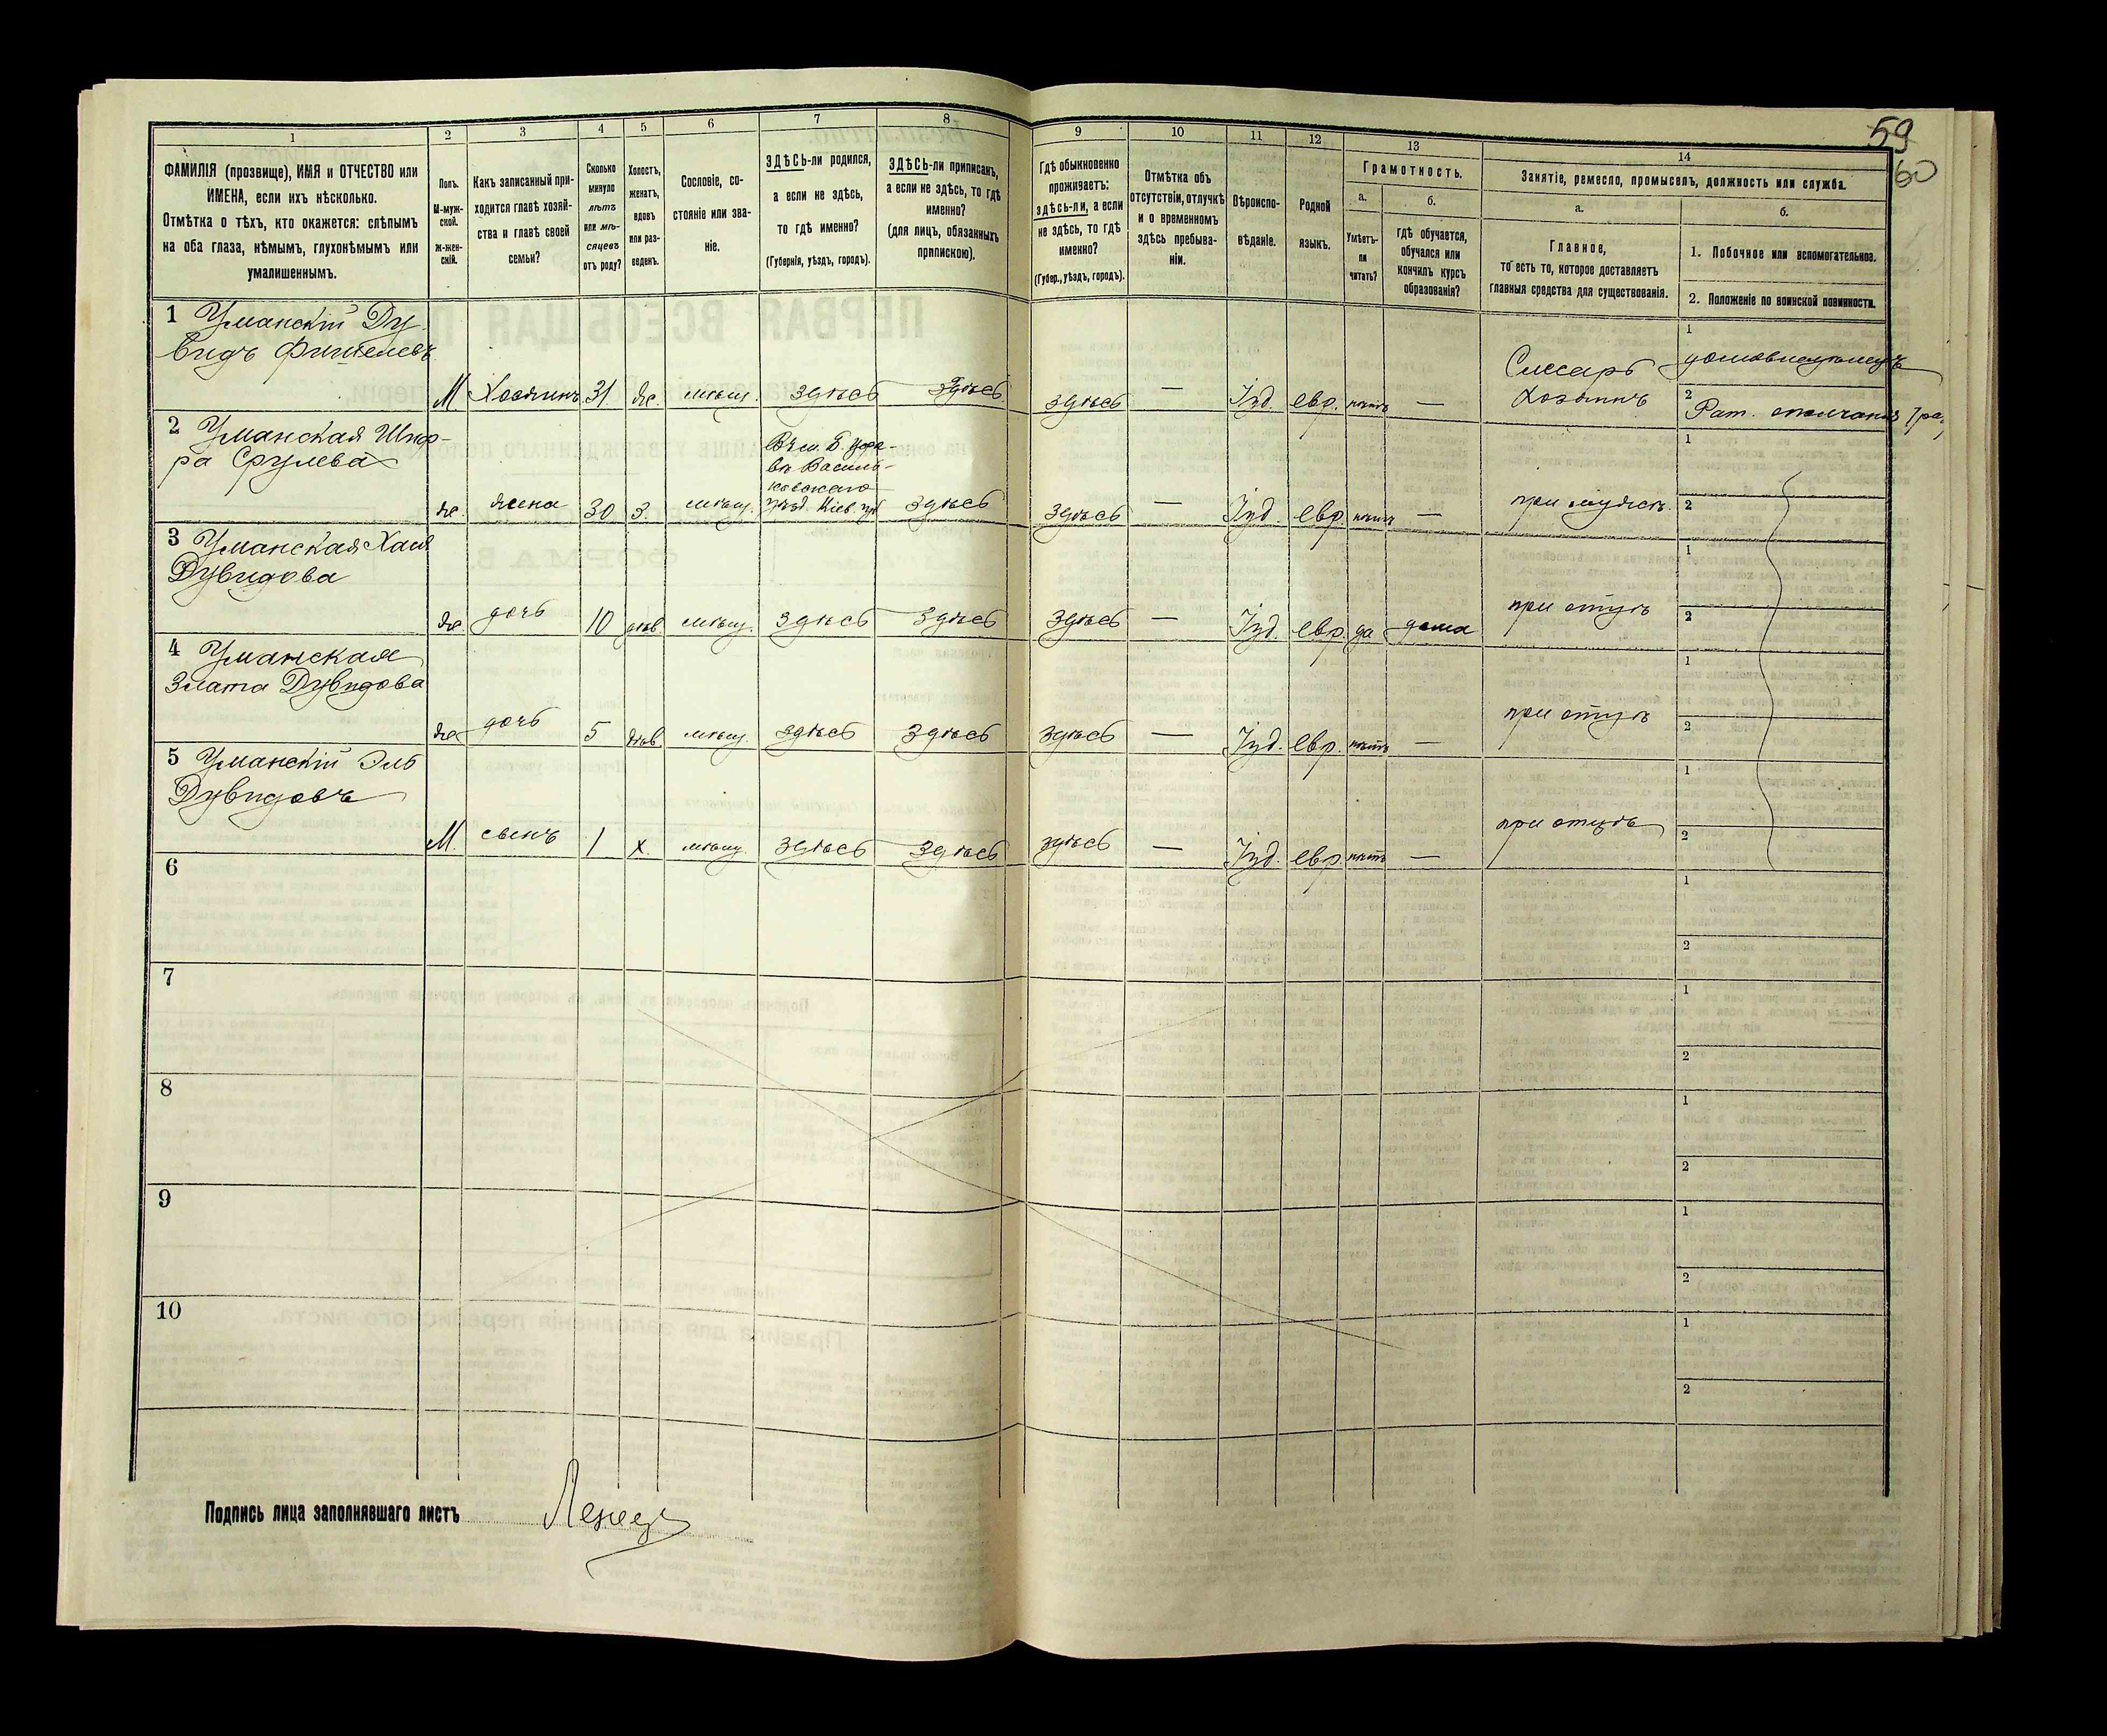 59
60
1
2
3
4
5
6
7
8
9
10
11
12
13
14
ФАМИЛІЯ (прозвище), ИМЯ и ОТЧЕСТВО или
ИМЕНА, если ихъ нѣсколько.
Отмѣтка о тѣхъ, кто окажется: слѣпымъ
на оба глаза, нѣмымъ, глухонѣмымъ или
умалишеннымъ.
Полъ.
М-муж-
ской.
ж-жен-
скій.
Какъ записанный при-
ходится главѣ хозяй-
ства и главѣ своей
семьи?
Сколько
минуло
лѣтъ
или мѣ-
сяцевъ
отъ роду?
Холостъ,
женатъ,
вдовъ
или раз-
веденъ.
Сословіе, со-
стояніе или зва-
ніе.
ЗДѢСЬ-ли родился,
а если не здѣсь,
то гдѣ именно?
(Губернія, уѣздъ, городъ).
ЗДѢСЬ-ли приписанъ,
а если не здѣсь, то гдѣ
именно?
(для лицъ, обязанныхъ
припискою).
Гдѣ обыкновенно
проживаетъ:
здѣсь-ли, а если
не здѣсь, то гдѣ
именно?
(Губер., уѣздъ, городъ).
Отмѣтка объ
отсутствіи, отлучкѣ
и о временномъ
здѣсь пребыва-
ніи.
Вѣроиспо-
вѣданіе.
Родной
языкъ.
Грамотность.
а.
Умѣетъ-
ли
читать?
б.
гдѣ обучается,
обучался или
кончилъ курсъ
образованія?
Занятіе, ремесло, промыселъ, должность или служба.
а.
Главное,
то есть то, которое доставляетъ
главныя средства для существованія.
б.
1. Побочное или вспомогательное.
2. Положеніе по воинской повинности.
1 Уманскій Ду-
видъ Фишелевъ
М Хозяинъ 31 Же. мѣщ. здѣсь здѣсь здѣсь — Іуд. евр. нѣтъ —
Слесарь
Хозяинъ
1 домовладѣлецъ
2 Рат. ополченія
2 Уманская Шпр-
ра Срулева
же. жена 30 З. мѣщ.
Въ м. Б. Цер-
кви Василь-
ковскаго
уѣзд. Кіев. губ
здѣсь здѣсь — Іуд. евр. нѣтъ — при мужѣ.
1
2
3 Уманская Хая
Дувидова
же дочь 10 дѣв мѣщ. здѣсь здѣсь здѣсь — Іуд. евр. да дома при отцѣ
1
2
4 Уманская
Злата Дувидова
же дочь 5 дѣв мѣщ. здѣсь здѣсь здѣсь — Іуд. евр. нѣтъ — при отцѣ
1
2
5 Уманскій Эль
Дувидовъ
М. сынъ 1 х. мѣщ. здѣсь здѣсь здѣсь — Іуд. евр. нѣтъ — при отцѣ
1
2
6
1
2
7
1
2
8
1
2
9
1
2
10
1
2
Подпись лица заполнявшаго листъ